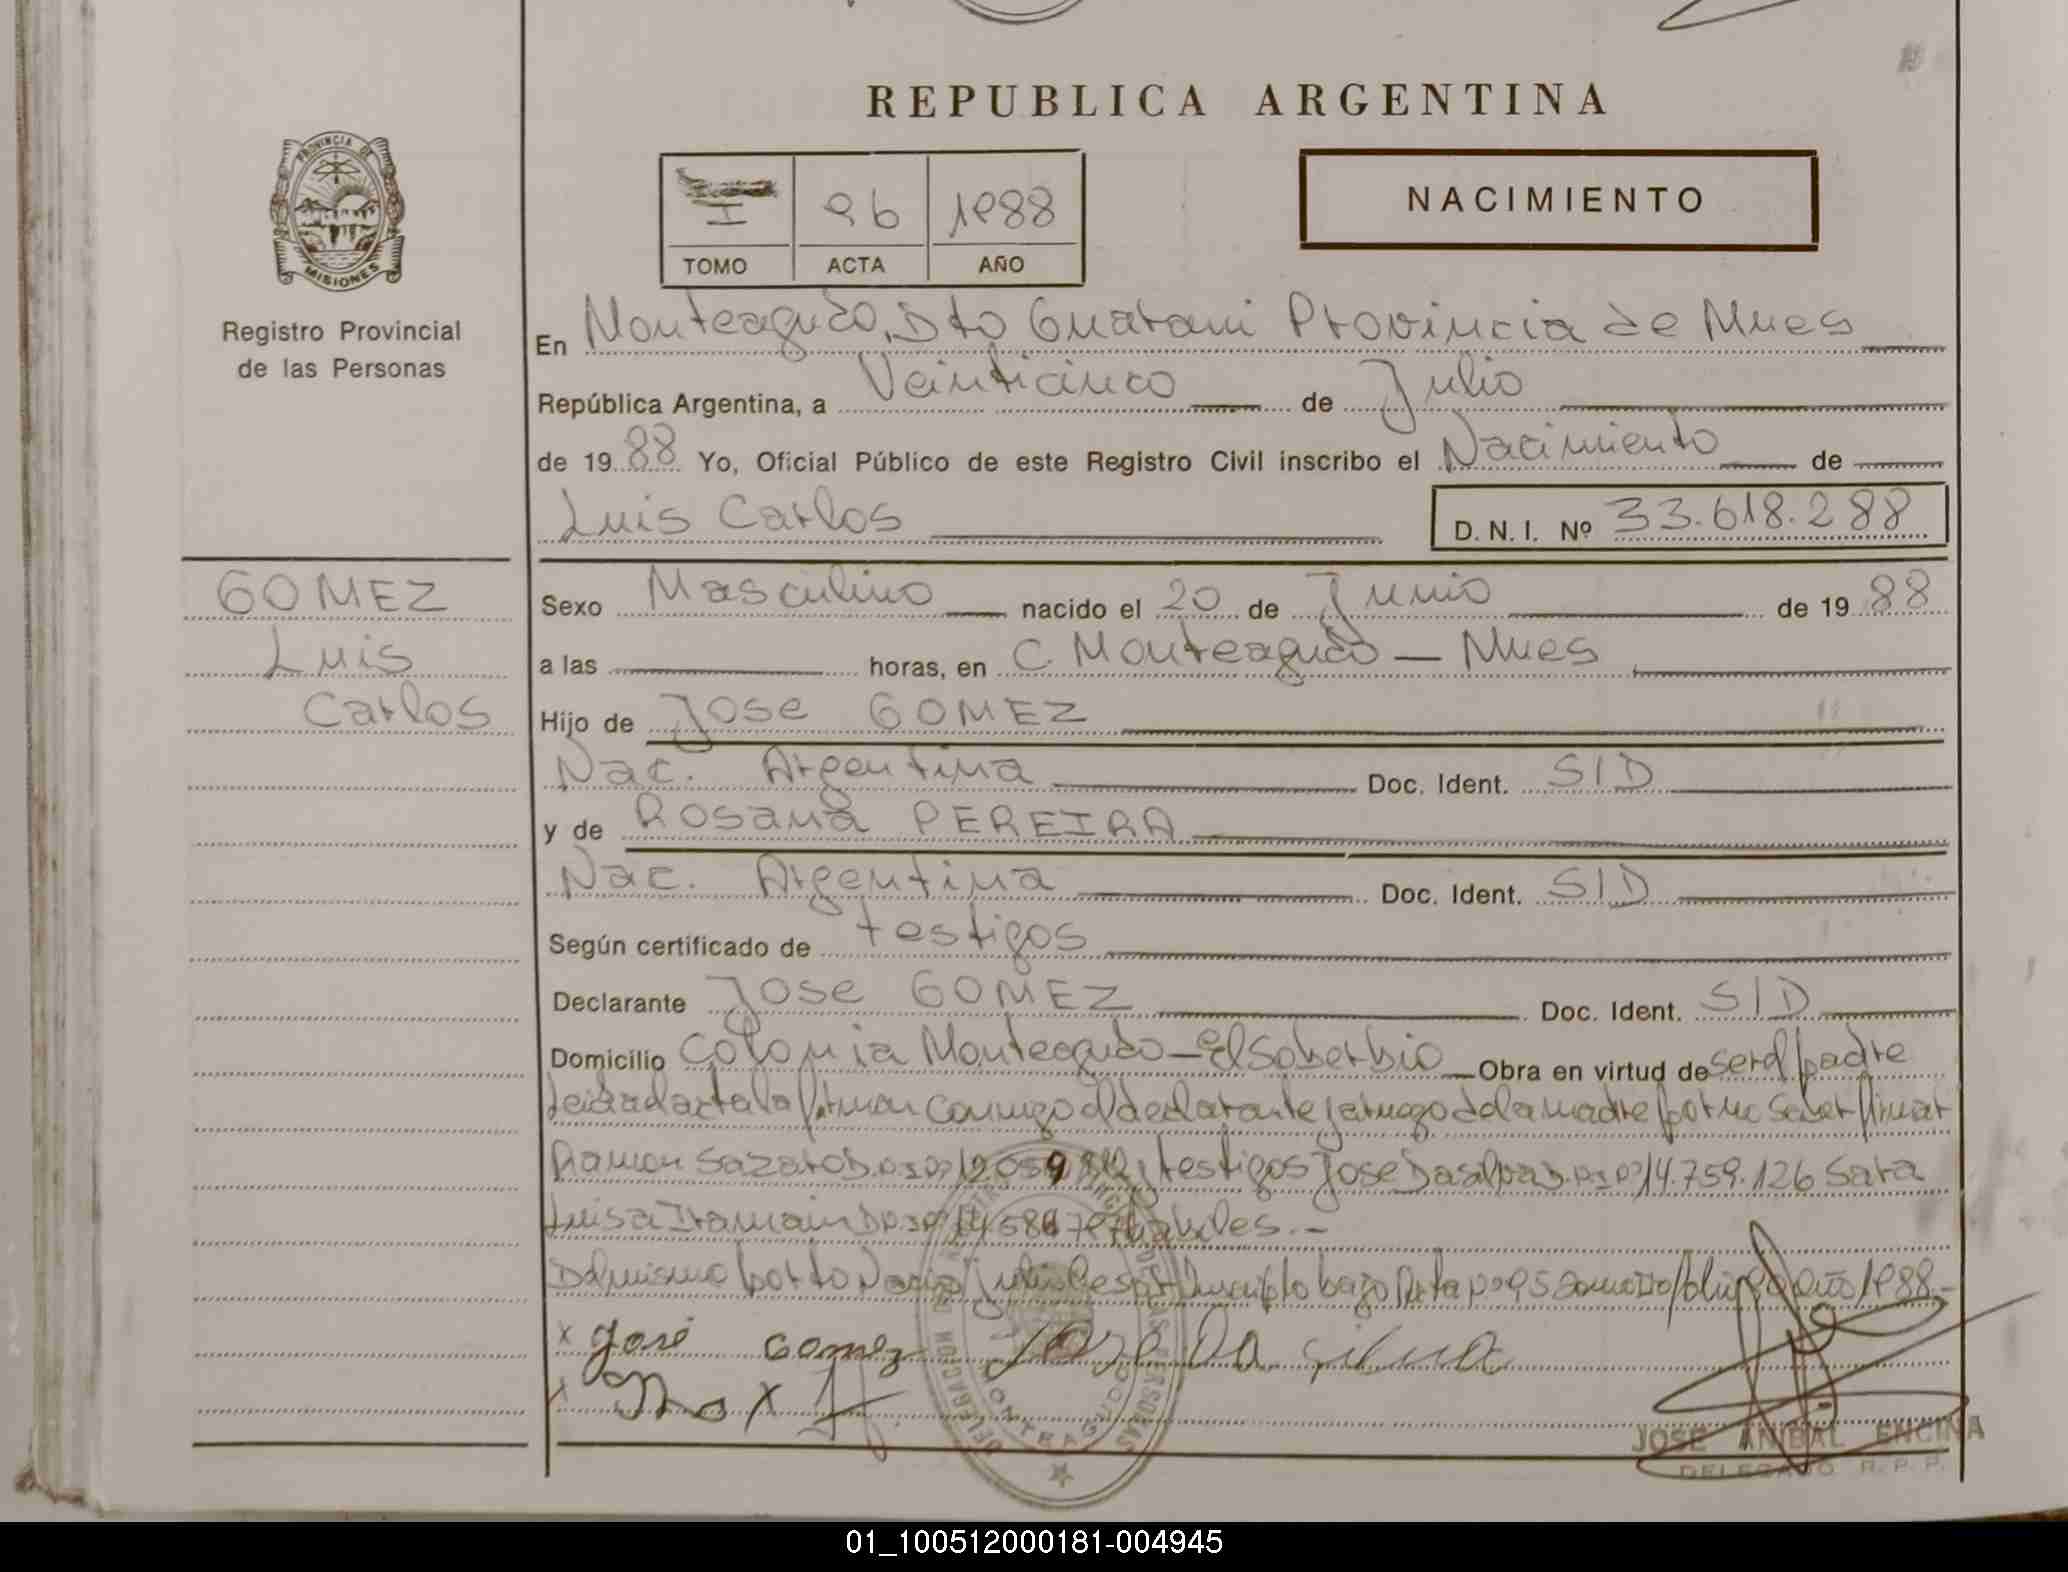 REPUBLICA ARGENTINA
PROVINCIA DE
MISIONES
Registro Provincial
de las Personas
I 96 1988
TOMO ACTA AÑO
NACIMIENTO
En Monteagudo, Dto Guarani Provincia de Mnes
República Argentina, a Veinticinco de Julio
de 1988 Yo, Oficial Público de este Registro Civil inscribo el Nacimiento de
Luis Carlos D.N.I. Nº 33.618.288
GOMEZ
Luis
Carlos
Sexo Masculino nacido el 20 de Junio de 1988
a las horas, en C. Monteagudo - Mnes
Hijo de Jose GOMEZ
Nac. Argentina Doc. Ident. S/D
y de Rosana PEREIRA
Nac. Argentina Doc. Ident. S/D
Según certificado de testigos
Declarante Jose GOMEZ Doc. Ident. S/D
Domicilio Colonia Monteagudo - El Soberbio Obra en virtud de ser el padre
leida el acta la firman conmigo el declarante y a ruego de la madre por no saber firmar
Ramon testigos Jose Dasilva 14.759.126 Sara
Luisa habiles.-
Del mismo parto Nacio Julio Cesar bajo Acta 95 año 1988.-
x José Gomez Jose Da Silva
x
JOSE ANIBAL ENCINA
DELEGADO R.P.P.
01_100512000181-004945